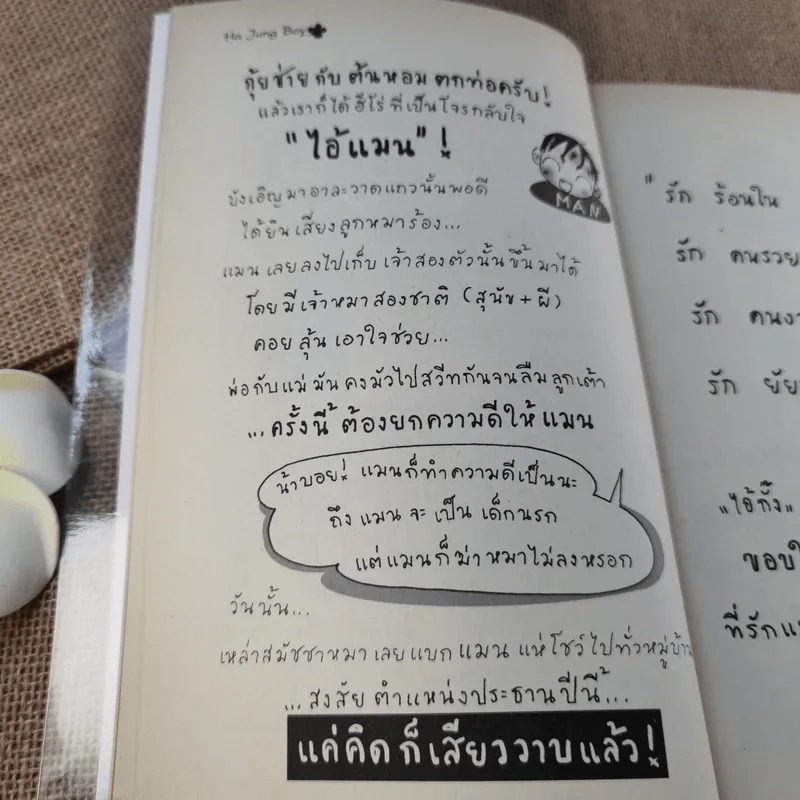 Ha Jung Boy
กุ้ยช่าย กับ ต้นหอม ตกท่อครับ!
แล้วเราก็ได้ ฮีโร่ ที่เป็นโจรกลับใจ
"ไอ้แมน"!
MAN
บังเอิญมาอาละวาดแถวนั้นพอดี
ได้ยินเสียงลูกหมาร้อง...
แมนเลยลงไปเก็บเจ้าสองตัวนั้นขึ้นมาได้
โดยมีเจ้าหมาสองชาติ (สุนัข + ผี)
คอยลุ้นเอาใจช่วย...
พ่อกับแม่มันคงมัวไปสวีทกันจนลืมลูกเต้า
...ครั้งนี้ ต้องยกความดีให้แมน
น้าบอย! แมนก็ทำความดีเป็นนะ
ถึงแมนจะเป็นเด็กนรก
แต่แมนก็ฆ่าหมาไม่ลงหรอก
วันนั้น...
เหล่าสมัชชาหมาเลยแบกแมนแห่โชว์ไปทั่วหมู่บ้าน
...สงสัยตำแหน่งประธานปีนี้...
แค่คิดก็เสียววาบแล้ว!
"รัก ร้อนใน
รัก คนรวย
รัก
รัก
"ไอ้กิ๊ง"
ที่รัก